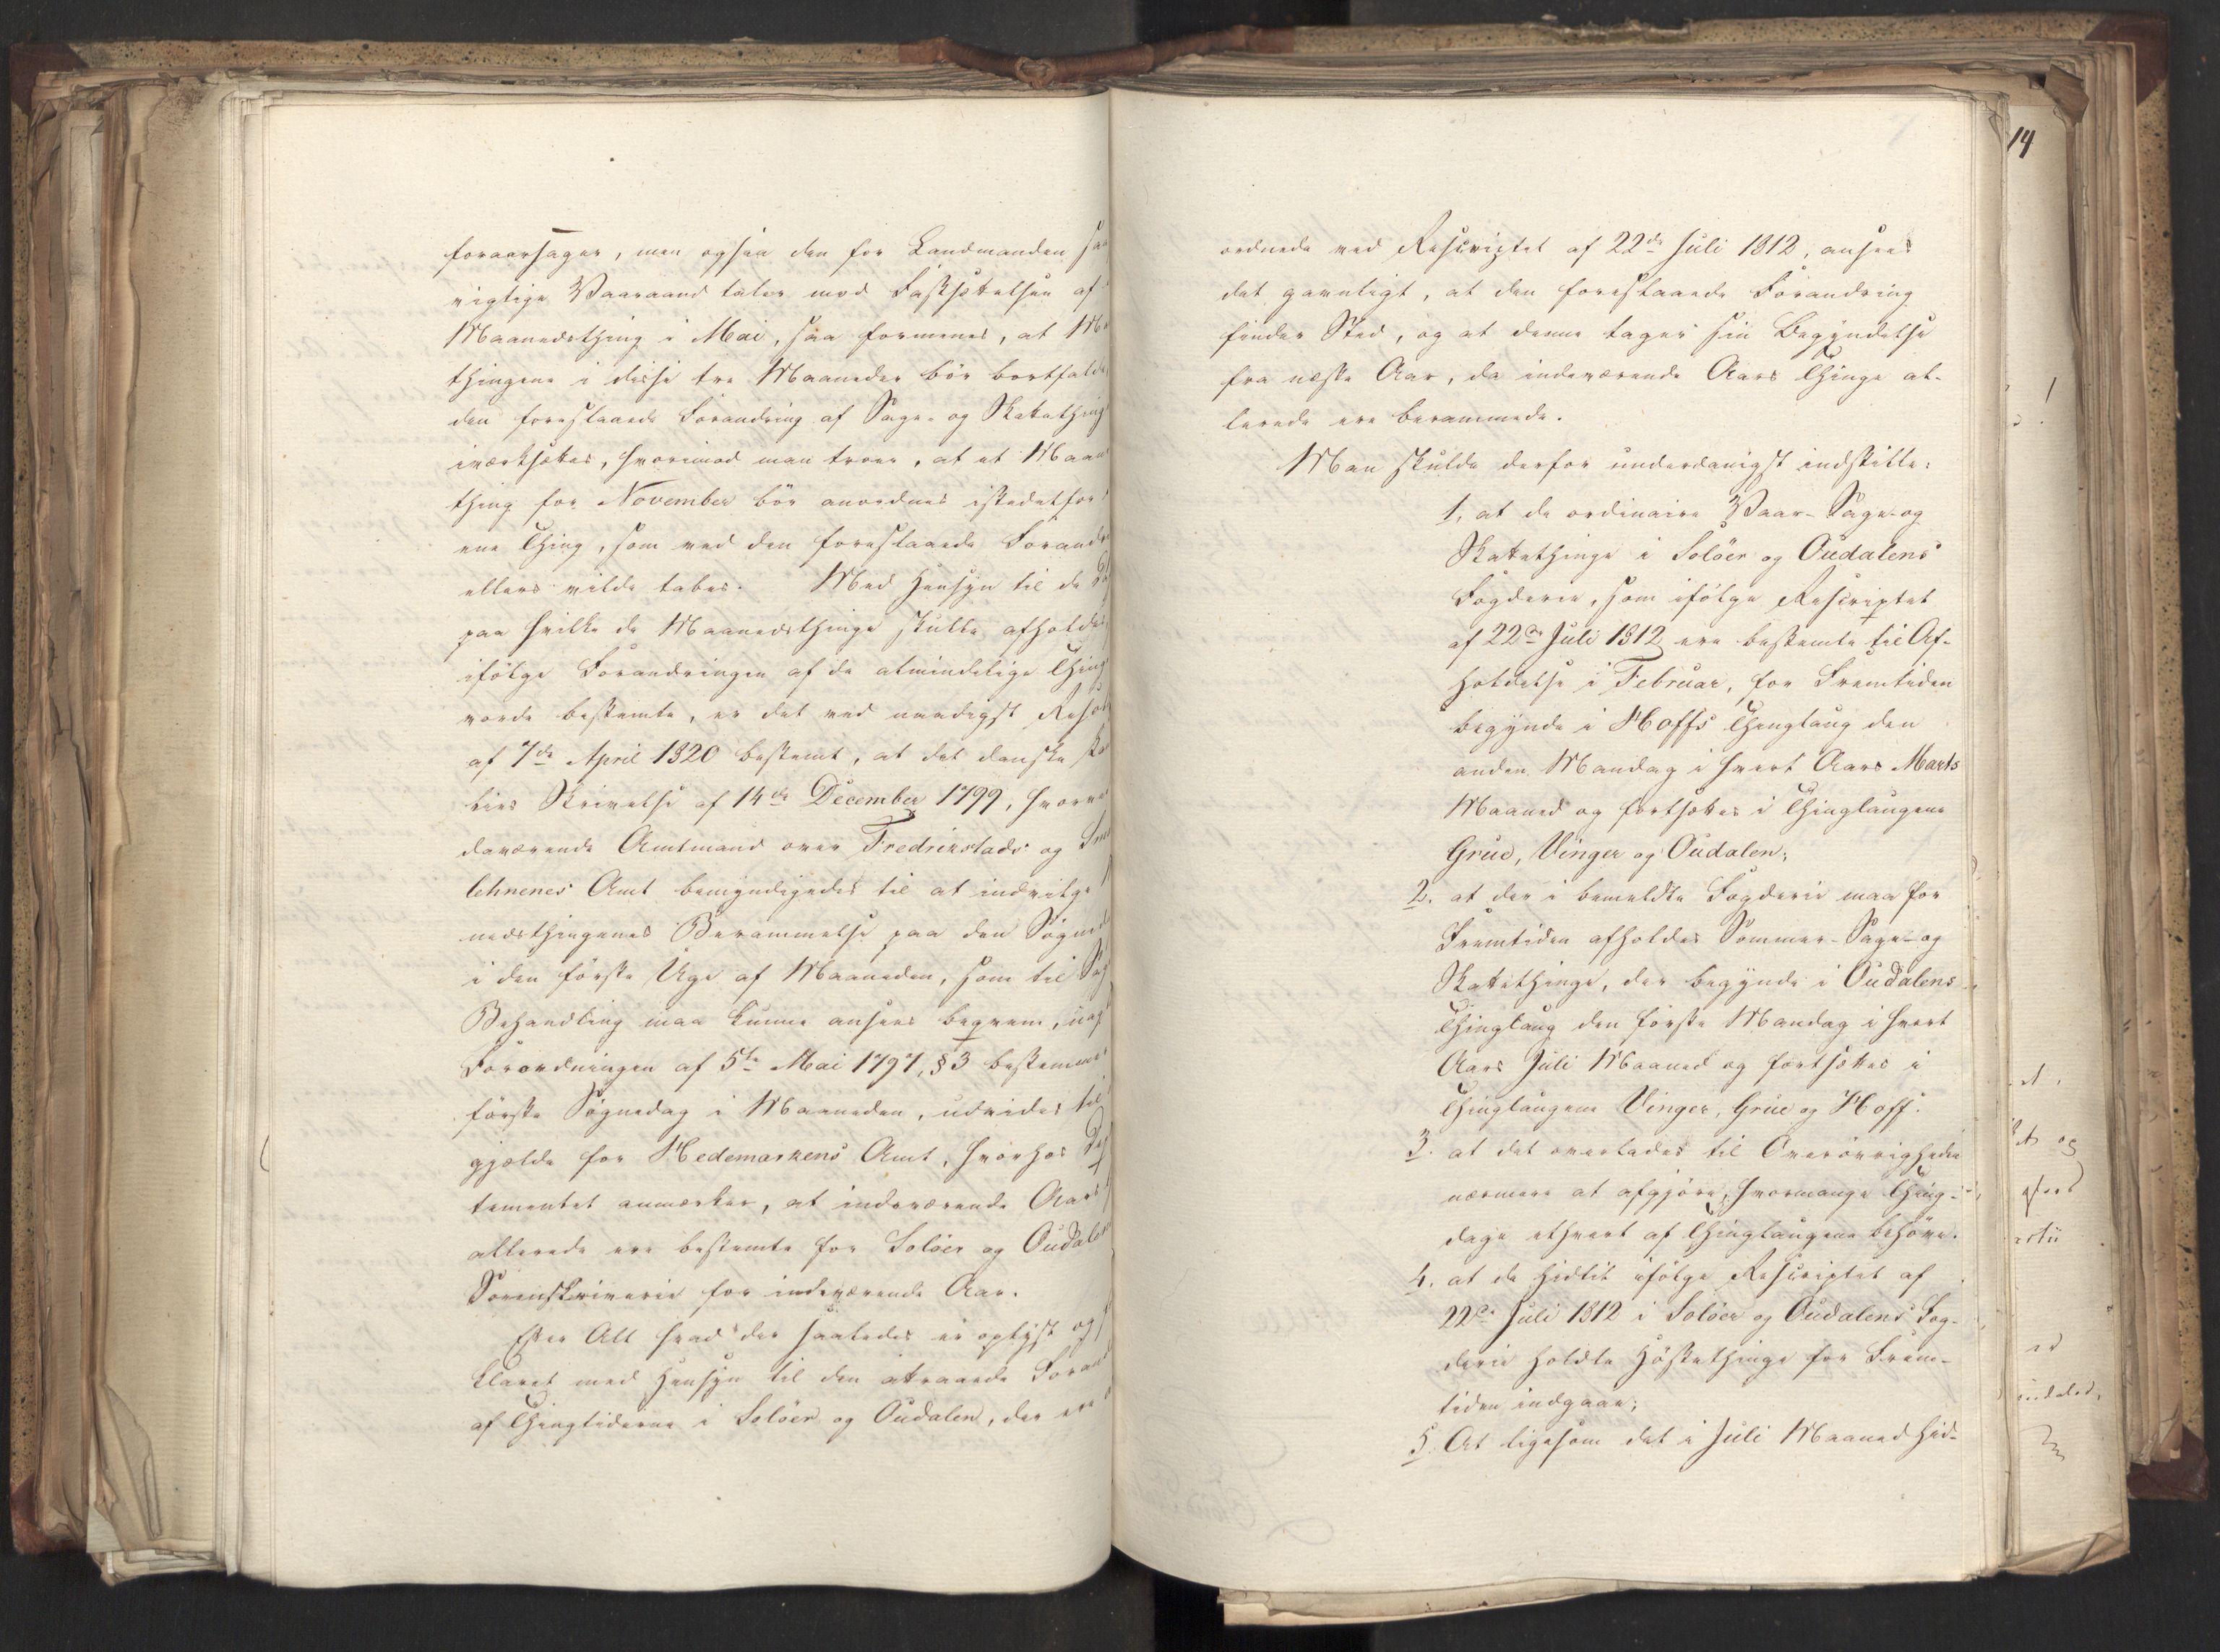 foraarsager, men ogsaa den for Landmanden saa
vigtige Vaaraand taler mod Fastsættelsen af
Maanedsthing i Mai, saa formenes, at Ma
thingene i disse tre Maaneder bör bortfalde,
den foreslaaede Forandring af Sage- og Skattething
iværksættes, hvorimod man troer, at et Maan
thing for November bör anordnes istedetfor
ene Thing, som ved den foreslaaede Forandr
ellers vilde tabes. Med Hensyn til de
paa hvilke de Maanedsthinge skulle afholdes,
ifölge Forandringen af de almindelige Thing
vorde bestemte, er det ved naadigst Resol
af 7de April 1820 bestemt, at det danske
lies Skrivelse af 14de December 1799, hvorved
daværende Amtmand over Fredrikstads og Sma
lehnenes Amt bemyndigedes til at indvilge
nedsthingenes Berammelse paa den Sögned
i den förste Uge af Maaneden, som til
Behandling maa kunne ansees beqvem, uag
Forordningen af 5te Mai 1797, § 3 bestemmer
förste Sögnedag i Maaneden, udvides til
gjælde for Hedemarkens Amt, hvorhos Dep
tementet anmærker, at indeværende Aars
allerede ere bestemte for Solöer og Oudalen
Sorenskriverie for indeværende Aar.
Efter Alt hvad der saaledes er oplyst og
klaret med Hensyn til den attraaede Forand
af Thingtiderne i Solöer og Oudalen, der ere
14
ordnede ved Rescriptet af 22de Juli 1812, ansees
det gavnligt, at den foreslaaede Forandring
finder Sted, og at denne tager sin Begyndelse
fra næste Aar, da indeværende Aars Thinge al-
lerede ere berammede.
Man skulde derfor underdanigst indstille:
1, at de ordinaire Vaar- Sage- og
Skattethinge i Solöer og Oudalens
Fogderie, som ifölge Rescriptet
af 22de Juli 1812 ere bestemte til Af-
holdelse i Februar, for Fremtiden
begynde i Hoffs Thinglaug den
anden Mandag i hvert Aars Marts
Maaned og fortsættes i Thinglaugene
Grue, Vinger og Oudalen;
2. at der i bemeldte Fogderie maa for
Fremtiden afholdes Sommer- Sage- og
Skattethinge, der begynde i Oudalens
Thinglaug den förste Mandag i hvert
Aars Juli Maaned og fortsættes i
Thinglaugene Vinger, Grue og Hoff.
3. at det overlades til Overövrigheden
nærmere at afgjöre, hvormange Thing-
dage ethvert af Thinglaugene behöve.
4. at de hidtil ifölge Rescriptet af
22de Juli 1812 i Solöer og Oudalens Fog-
derie holdte Höstethinge for Frem-
tiden indgaae;
5. At ligesom det i Juli Maaned hid-